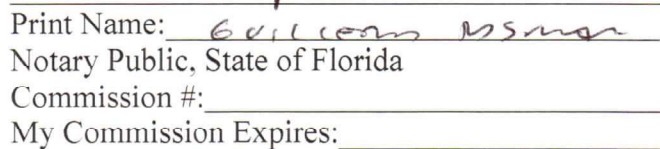 Print Name:
Notary Public, State of Florida
Commission #:
My Commission Expires: